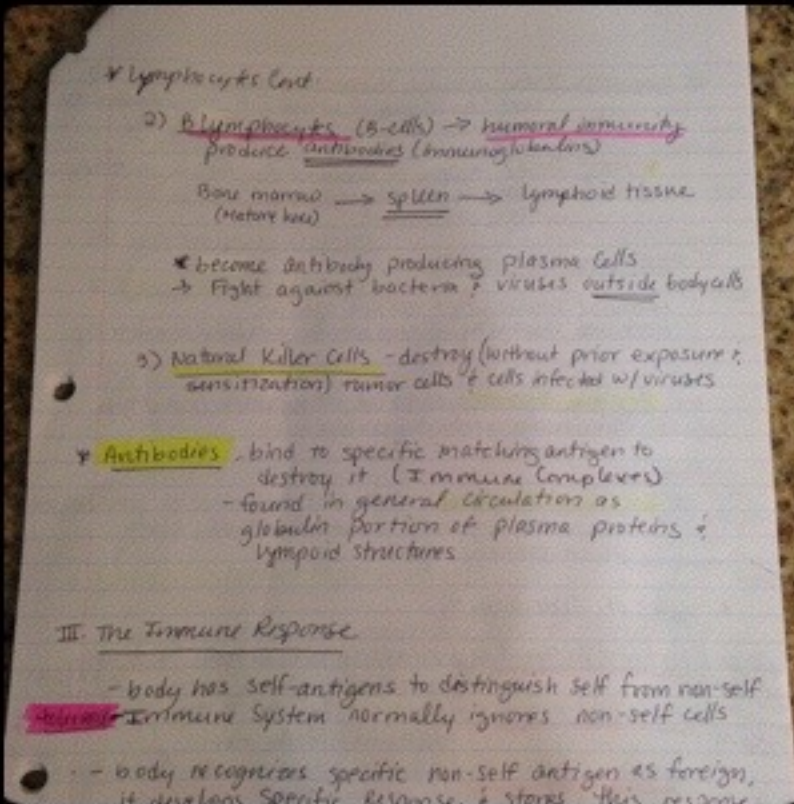 * Lymphocytes Cont.
2) B Lymphocytes (B-cells) → humoral immunity
produce antibodies (immunoglobulins)
Bone marrow → spleen → lymphoid tissue
(Mature here)
* become antibody producing plasma cells
→ Fight against bacteria & viruses outside body cells
3) Natural Killer Cells - destroy (without prior exposure &
sensitization) tumor cells & cells infected w/ viruses
* Antibodies - bind to specific matching antigen to
destroy it (Immune Complexes)
- found in general circulation as
globulin portion of plasma proteins &
lympoid structures
III. The Immune Response
- body has self-antigens to distinguish self from non-self
- Immune System normally ignores non-self cells
- body recognizes specific non-self antigen as foreign,
it develops specific response & stores this response